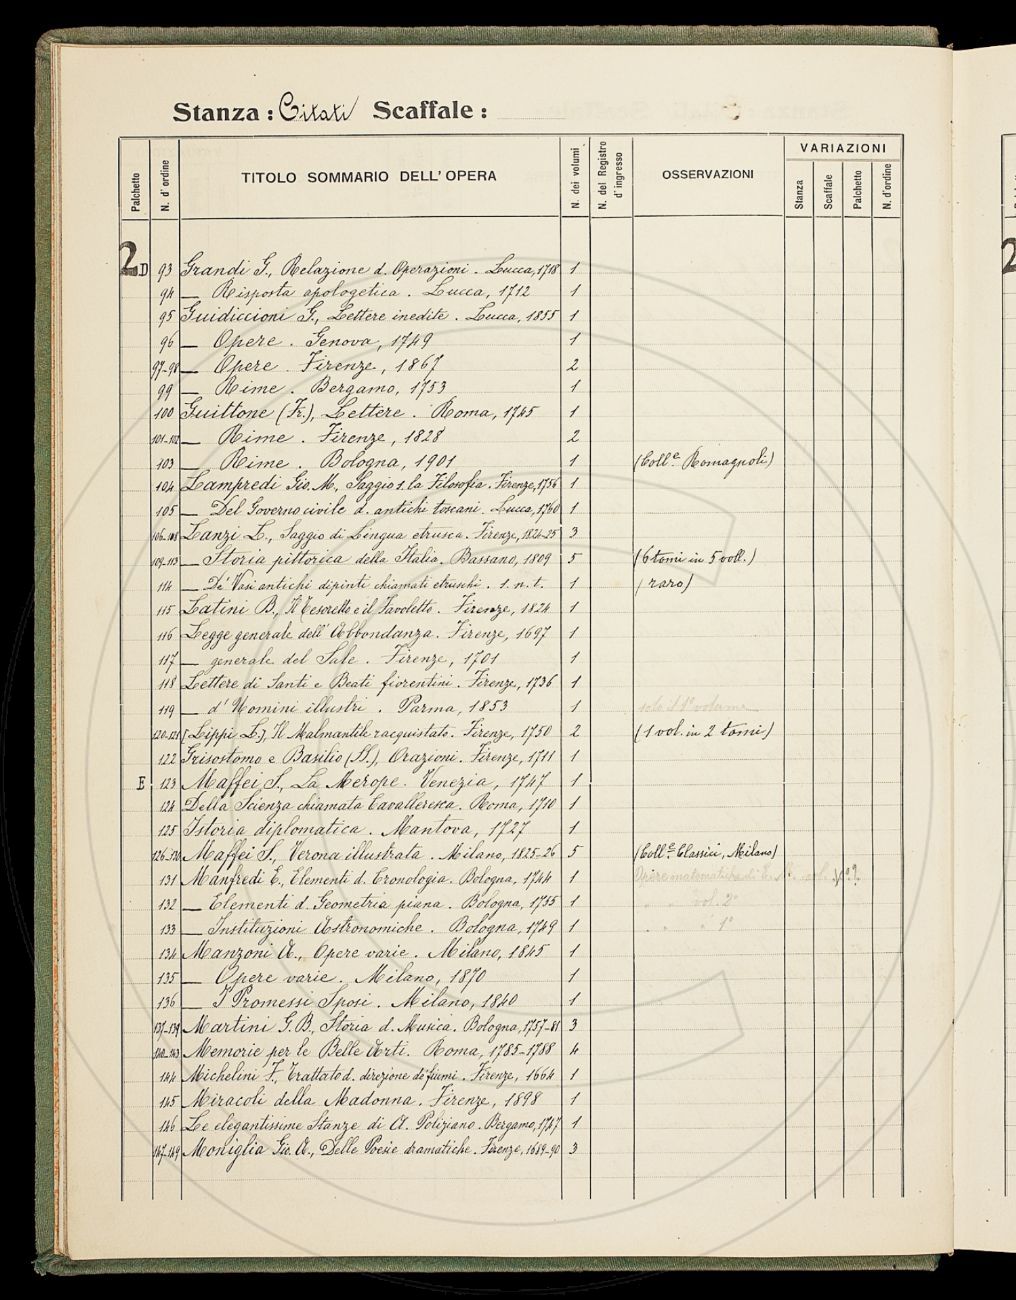 Stanza: Citati Scaffale:
Palchetto N. d'ordine TITOLO SOMMARIO DELL'OPERA N. dei volumi N. del Registro d'ingresso OSSERVAZIONI VARIAZIONI
Stanza Scaffale Palchetto N. d'ordine
2D 93 Grandi G., Relazione d. Operazioni. Lucca, 1718 1
94 — Risposta apologetica. Lucca, 1712 1
95 Guidiccioni G., Lettere inedite. Lucca, 1855 1
96 — Opere. Genova, 1749 1
97-98 — Opere. Firenze, 1867 2
99 — Rime. Bergamo, 1753 1
100 Guittone (Fr.), Lettere. Roma, 1745 1
101-102 — Rime. Firenze, 1828 2
103 — Rime. Bologna, 1901 1 (Coll.e Romagnoli)
104 Lampredi Gio. M., Saggio s. la Filosofia. Firenze, 1756 1
105 — Del Governo civile d. antichi toscani. Lucca, 1760 1
106-108 Lanzi L., Saggio di Lingua etrusca. Firenze, 1824-25 3
109-113 — Storia pittorica della Italia. Bassano, 1809 5 (6 tomi in 5 voll.)
114 — De' Vasi antichi dipinti chiamati etruschi. s. n. t. 1 (raro)
115 Latini B., Il Tesoretto e il Favoletto. Firenze, 1824 1
116 Legge generale dell'Abbondanza. Firenze, 1697 1
117 — generale del Sale. Firenze, 1701 1
118 Lettere di Santi e Beati fiorentini. Firenze, 1736 1
119 — d'Uomini illustri. Parma, 1853 1 solo il 1° volume
120-121 [Lippi L.], Il Malmantile racquistato. Firenze, 1750 2 (1 vol. in 2 tomi)
122 Grisostomo e Basilio (SS.), Orazioni. Firenze, 1711 1
E 123 Maffei S., La Merope. Venezia, 1747 1
124 Della Scienza chiamata Cavalleresca. Roma, 1710 1
125 Istoria diplomatica. Mantova, 1727 1
126-130 Maffei S., Verona illustrata. Milano, 1825-26 5 (Coll.e Classici, Milano)
131 Manfredi E., Elementi d. Cronologia. Bologna, 1744 1 Opere matematiche di E. M. vol.
132 — Elementi d. Geometria piana. Bologna, 1755 1 " " vol. 2°
133 — Instituzioni Astronomiche. Bologna, 1749 1 " " " 1°
134 Manzoni A., Opere varie. Milano, 1845 1
135 — Opere varie. Milano, 1870 1
136 — I Promessi Sposi. Milano, 1840 1
137-139 Martini G. B., Storia d. Musica. Bologna, 1757-81 3
140-143 Memorie per le Belle Arti. Roma, 1785-1788 4
144 Michelini F., Trattato d. direzione de' fiumi. Firenze, 1664 1
145 Miracoli della Madonna. Firenze, 1898 1
146 Le elegantissime Stanze di A. Poliziano. Bergamo, 1747 1
147-149 Moniglia Gio. A., Delle Poesie dramatiche. Firenze, 1689-90 3
2